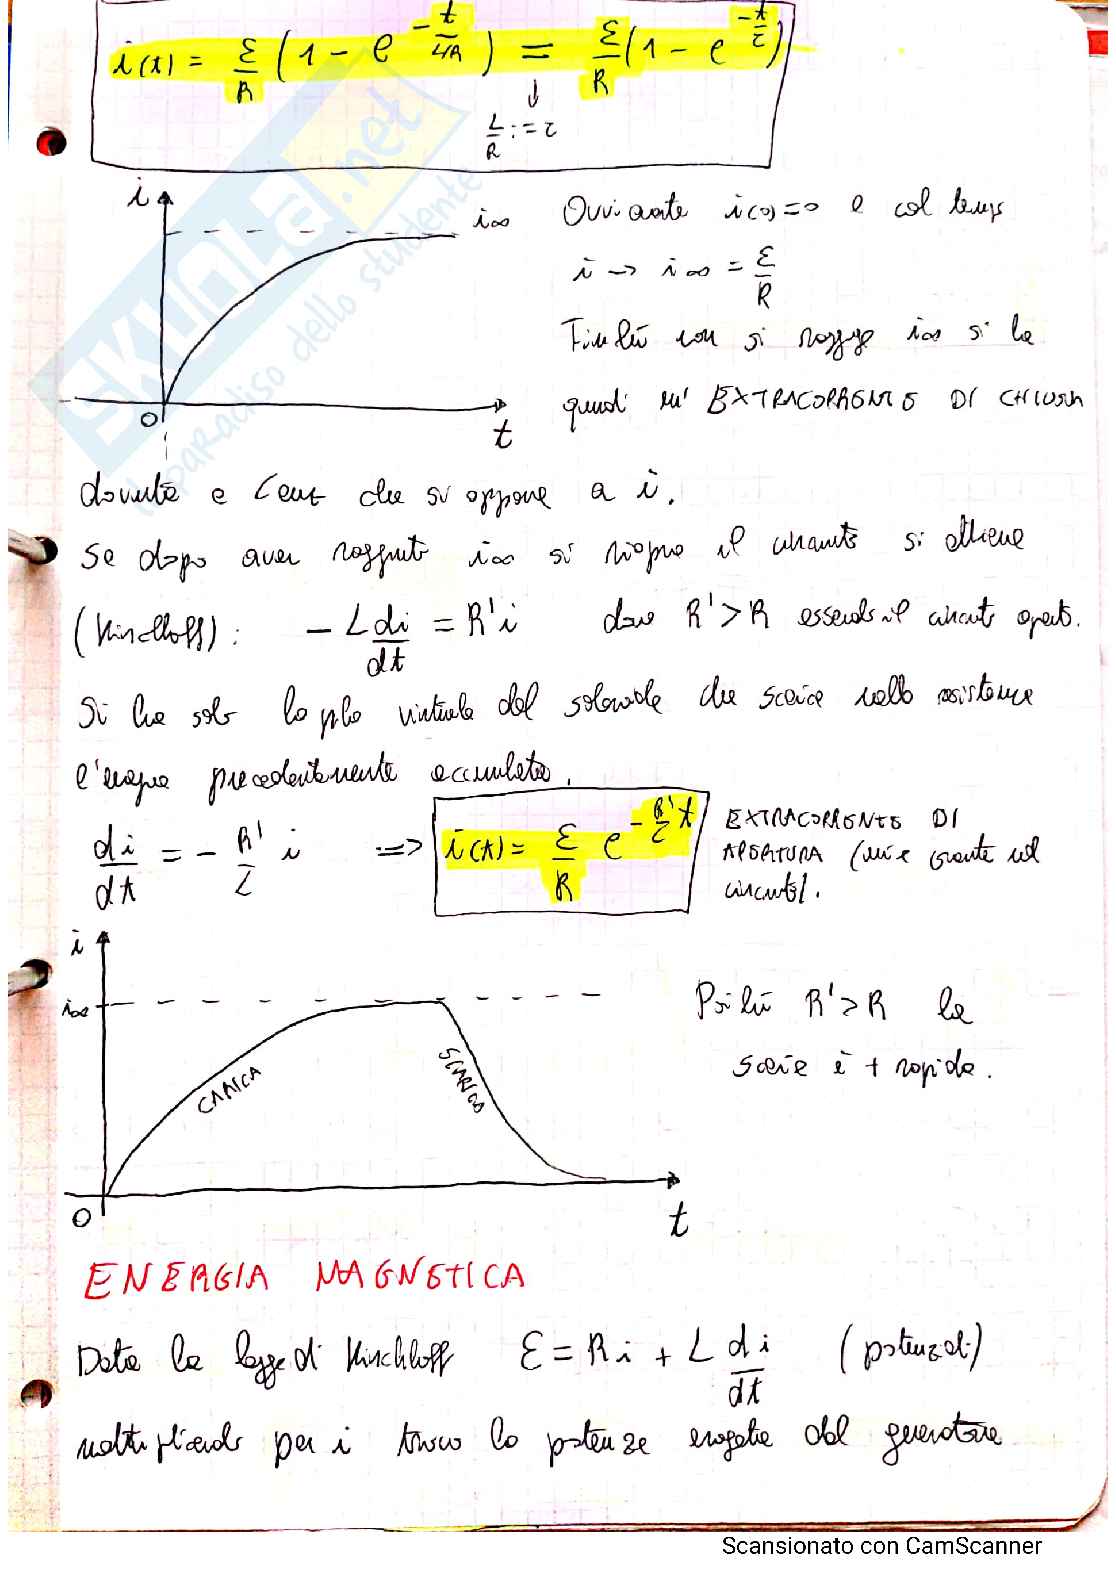 i(t) = ε/R (1 - e^(-t/(L/R))) = ε/R (1 - e^(-t/τ))
↓
L/R := τ
i
i∞
0
t
Ovviamente i(0)=0 e col tempo
i → i∞ = ε/R
Finché non si raggge i∞ si ha
quindi un' EXTRACORRENTE DI CHIUSURA
dovuta a L che si oppone a i.
Se dopo aver raggiunto i∞ si riapre il circuito si ottiene
(Kirchhoff): - L di/dt = R'i dove R'>R essendo il circuito aperto.
Si ha solo la del solenoide che scarica nella resistenza
l'energia precedentemente accumulata.
di/dt = - R'/L i => i(t) = ε/R e^(-R'/L t)
EXTRACORRENTE DI
APERTURA (
circuito).
i
i∞
CARICA
SCARICA
0
t
Poiché R'>R la
scarica è + rapida.
ENERGIA MAGNETICA
Data la legge di Kirchhoff ε = Ri + L di/dt (potenziali)
moltiplicando per i trovo la potenza erogata dal generatore
SKUOLA.net
il paradiso dello studente
Scansionato con CamScanner